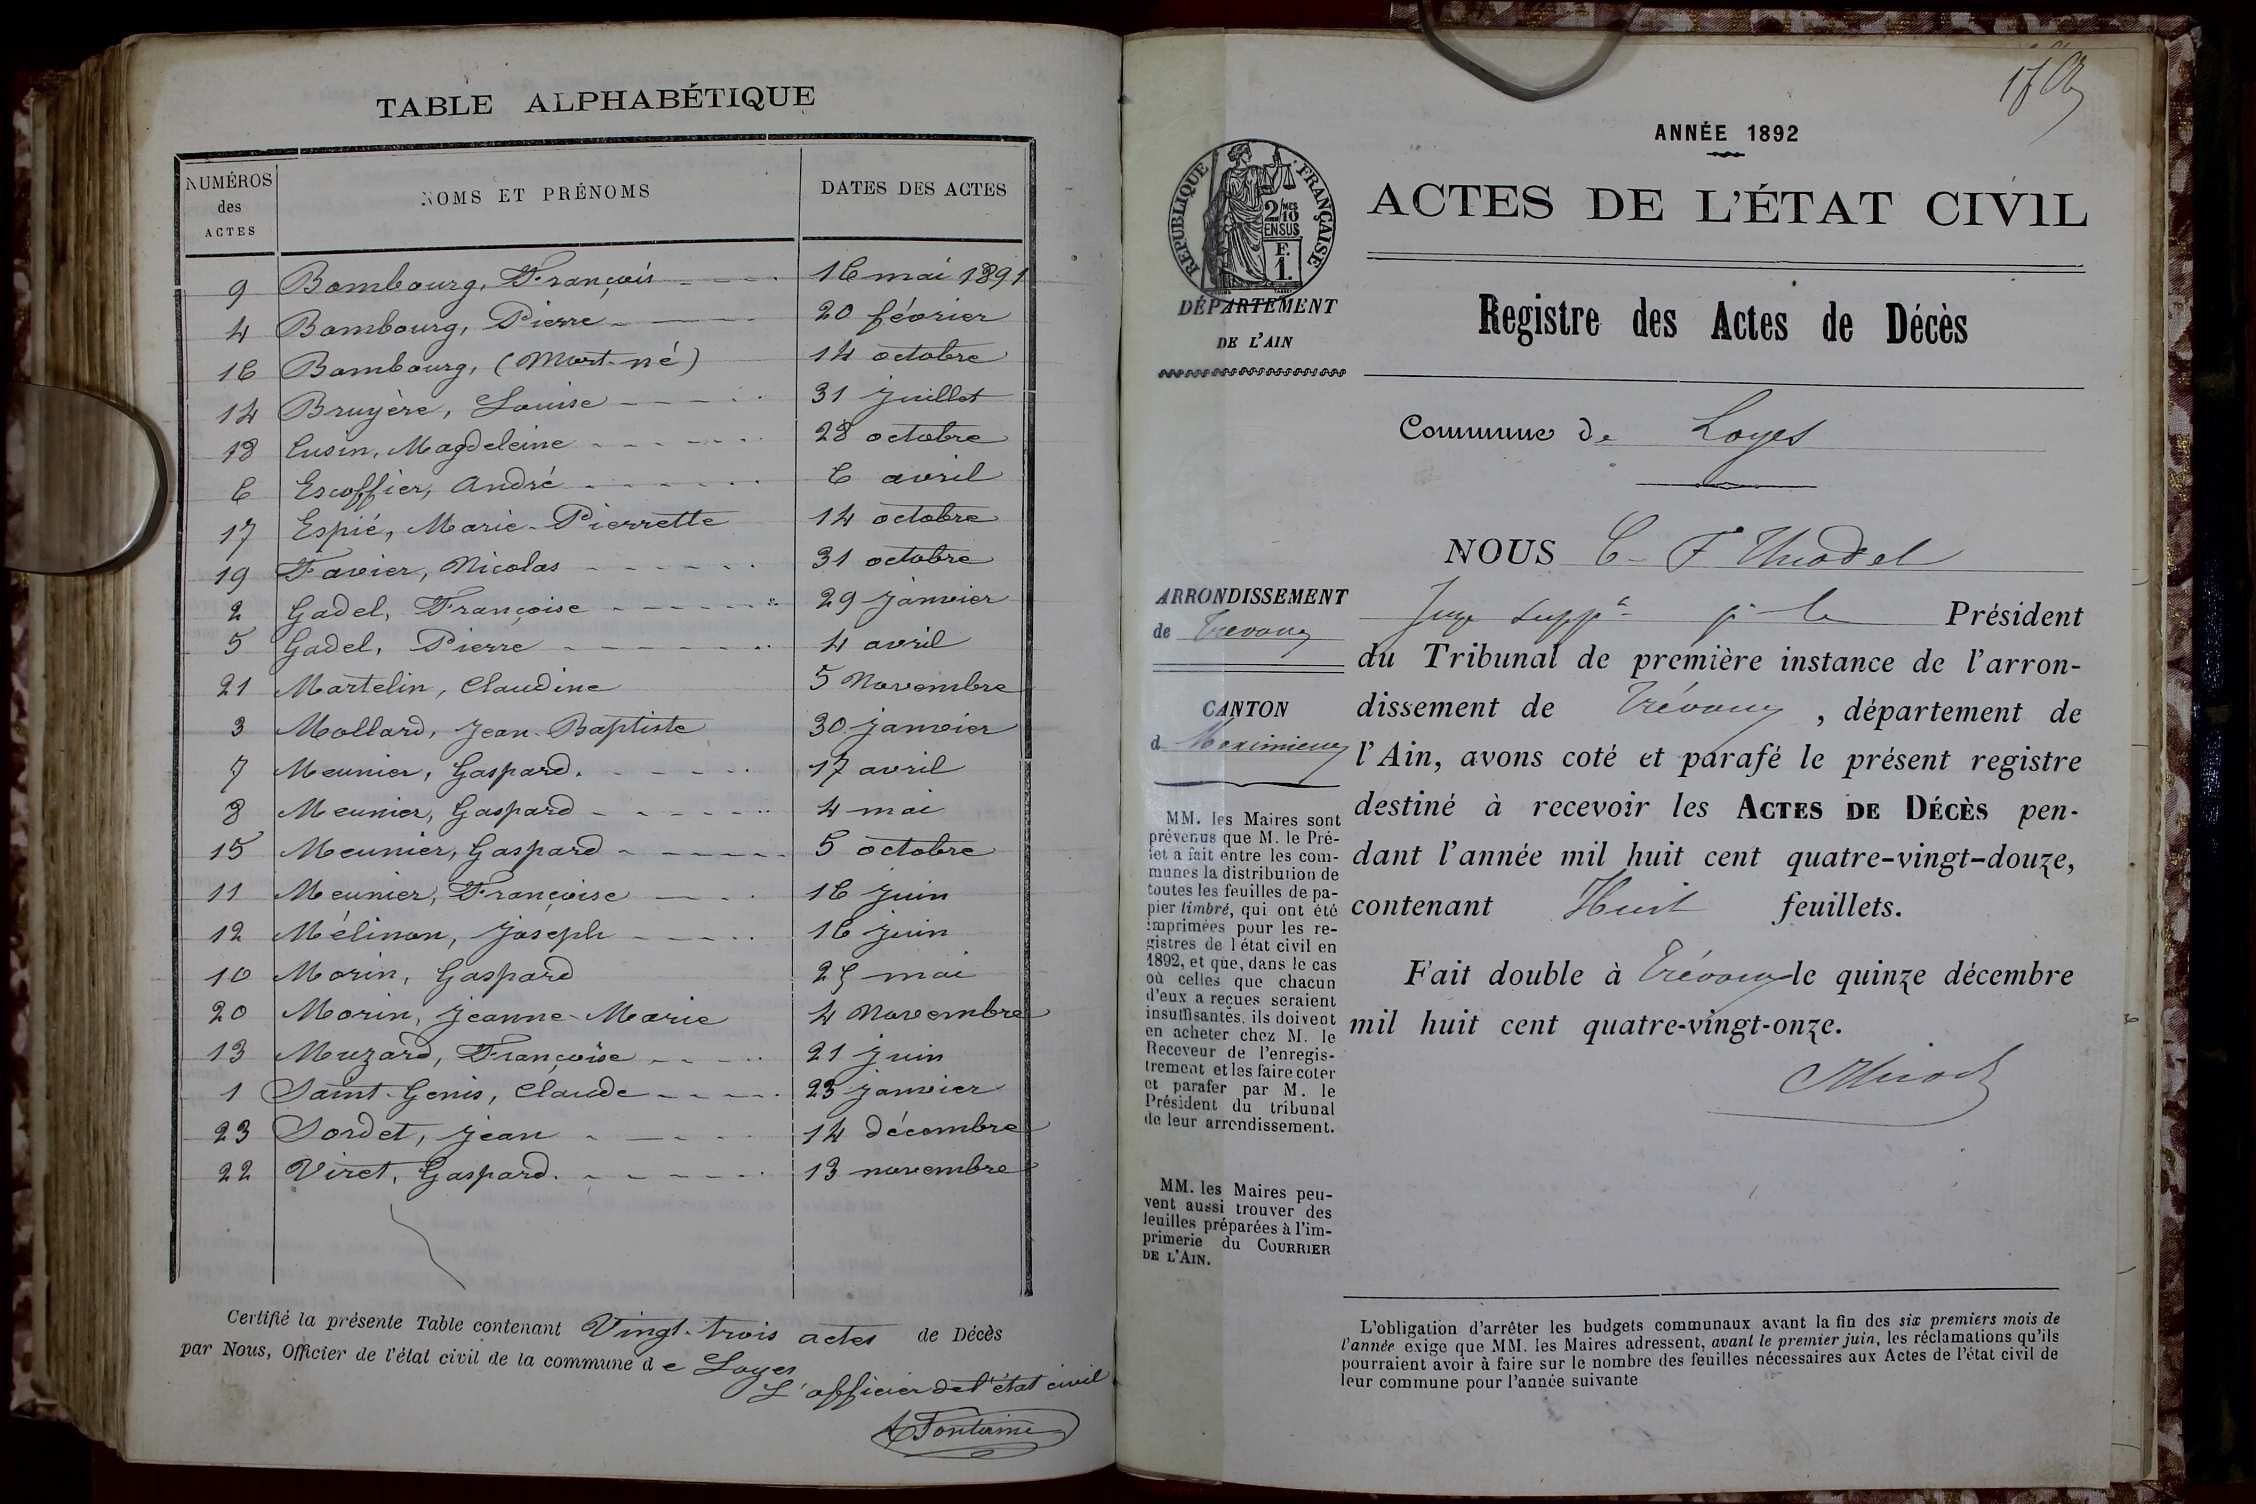 TABLE ALPHABÉTIQUE
NUMÉROS des ACTES NOMS ET PRÉNOMS DATES DES ACTES
9 Bombourg, François 16 mai 1891
4 Bombourg, Pierre 20 février
16 Bombourg, (Mort-né) 14 octobre
14 Bruyère, Louise 31 juillet
18 Cusin, Magdeleine 28 octobre
6 Escoffier, André 6 avril
17 Espié, Marie-Pierrette 14 octobre
19 Favier, Nicolas 31 octobre
2 Gadel, Françoise 29 janvier
5 Gadel, Pierre 4 avril
21 Martelin, Claudine 5 Novembre
3 Mollard, Jean-Baptiste 30 janvier
7 Meunier, Gaspard. 17 avril
8 Meunier, Gaspard 4 mai
15 Meunier, Gaspard 5 octobre
11 Meunier, Françoise 16 juin
12 Mélinon, Joseph 16 juin
10 Morin, Gaspard mai
20 Morin, Jeanne-Marie 4 Novembre
13 Muzard, Françoise 21 juin
1 Saint-Genis, Claude 23 janvier
23 Sordet, Jean 14 décembre
22 Viret, Gaspard. 13 novembre
Certifié la présente Table contenant Vingt-trois actes de Décès
par Nous, Officier de l'état civil de la commune de Loyes
L'officier de l'état civil
Fontaine
ANNÉE 1892
ACTES DE L'ÉTAT CIVIL
Registre des Actes de Décès
Commune de Loyes
RÉPUBLIQUE FRANÇAISE
2/10 MES
EN SUS
F.
1.
DÉPARTEMENT
DE L'AIN
ARRONDISSEMENT
de Trévoux
CANTON
d Meximieux
MM. les Maires sont
prévenus que M. le Pré-
fet a fait entre les com-
munes la distribution de
toutes les feuilles de pa-
pier timbré, qui ont été
imprimées pour les re-
gistres de l'état civil en
1892, et que, dans le cas
où celles que chacun
d'eux a reçues seraient
insuffisantes, ils doivent
en acheter chez M. le
Receveur de l'enregis-
trement et les faire coter
et parafer par M. le
Président du tribunal
de leur arrondissement.
MM. les Maires peu-
vent aussi trouver des
feuilles préparées à l'im-
primerie du COURRIER
DE L'AIN.
NOUS
Juge supp Président
du Tribunal de première instance de l'arron-
dissement de Trévoux, département de
l'Ain, avons coté et parafé le présent registre
destiné à recevoir les ACTES DE DÉCÈS pen-
dant l'année mil huit cent quatre-vingt-douze,
contenant Huit feuillets.
Fait double à Trévoux le quinze décembre
mil huit cent quatre-vingt-onze.
L'obligation d'arrêter les budgets communaux avant la fin des six premiers mois de
l'année exige que MM. les Maires adressent, avant le premier juin, les réclamations qu'ils
pourraient avoir à faire sur le nombre des feuilles nécessaires aux Actes de l'état civil de
leur commune pour l'année suivante